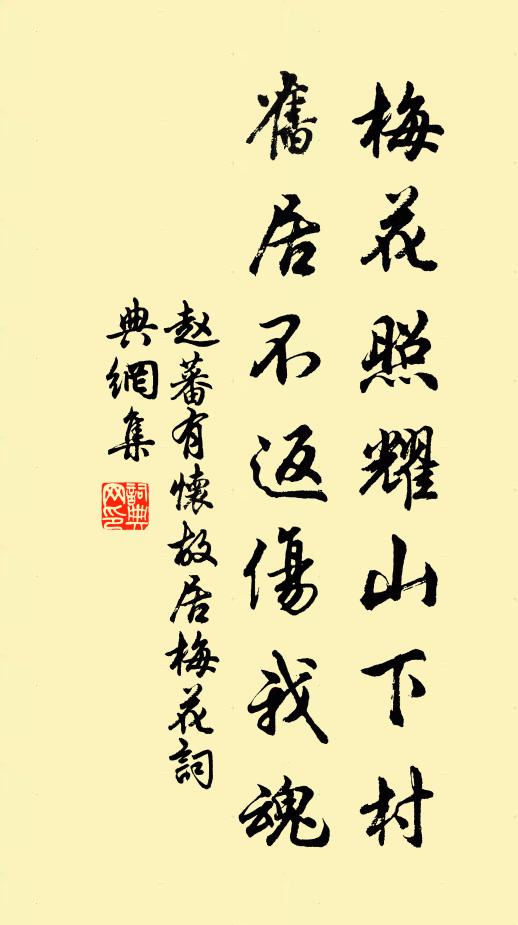 梅花照耀山下村
舊居不返傷我魂
赵蕃有懷故居梅花詞
典網集
詞典
网印